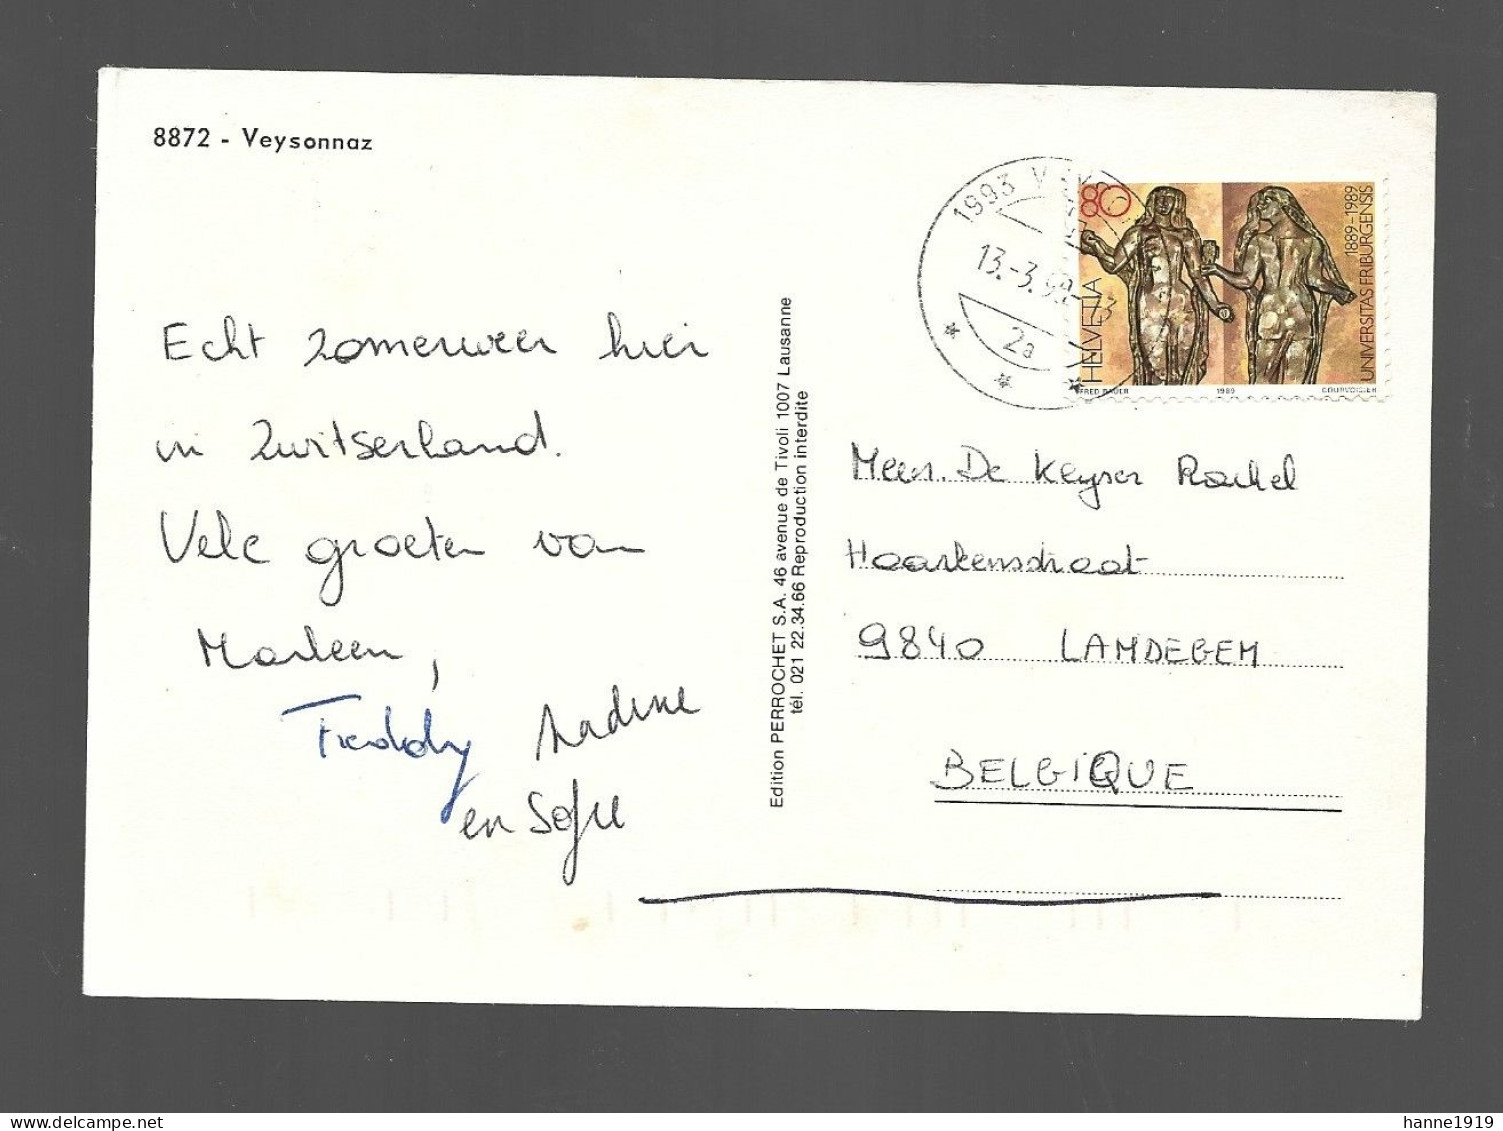 8872 - Veysonnaz
Echt zomerweer hier
in Zwitserland.
Vele groeten van
Marleen,
Freddy Nadine
en Sofie
Edition PERROCHET S.A. 46 avenue de Tivoli 1007 Lausanne
tél. 021 22.34.66 Reproduction interdite
1993 VEYS
13.-3.90-13
2a
80
HELVETIA
1889-1989
UNIVERSITAS FRIBURGENSIS
FRED BAUER 1989 COURVOISIER
De Keyser Rachel
Haarkenstraat
9840 LANDEGEM
BELGIQUE
hanne1919